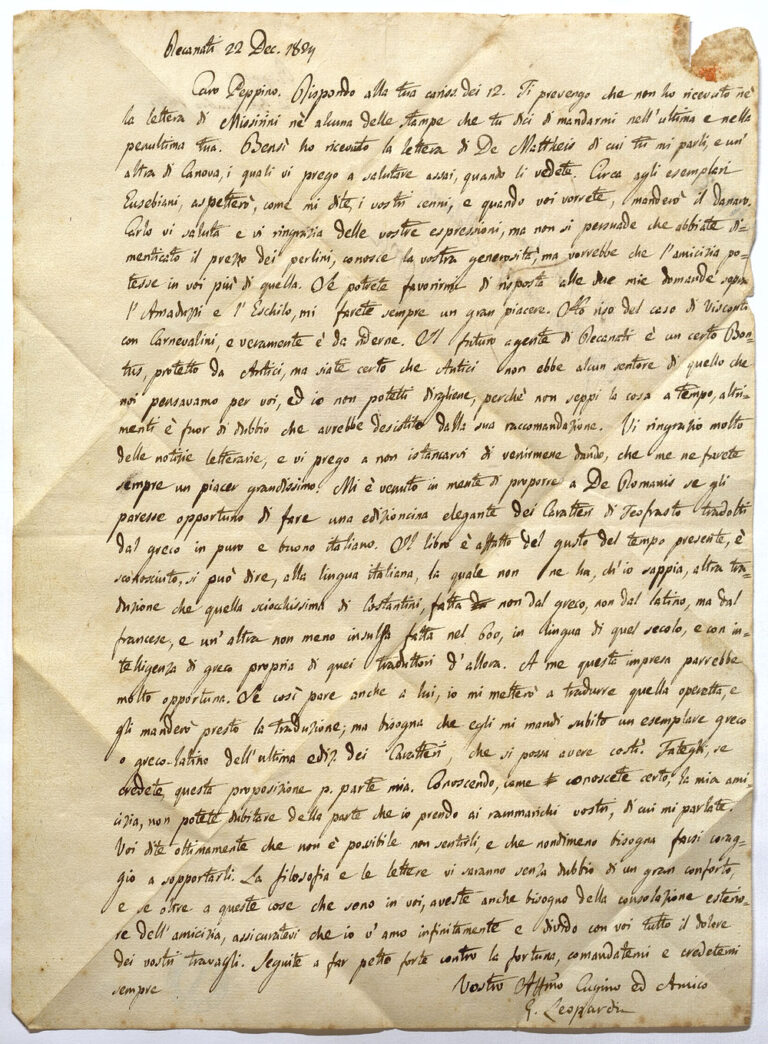 Recanati 22 Dec. 1824
Caro Peppino. Rispondo alla tua carissa dei 12. Ti prevengo che non ho ricevuto nè
la lettera di Missirini nè alcuna delle stampe che tu dici di mandarmi nell'ultima e nella
penultima tua. Bensì ho ricevuto la lettera di De Mattheis di cui tu mi parli, e un'
altra di Canova, i quali vi prego a salutare assai, quando li vedete. Circa agli esemplari
Eusebiani, aspetterò, come mi dite, i vostri cenni, e quando voi vorrete, manderò il danaro.
Carlo vi saluta e vi ringrazia delle vostre espressioni, ma non si persuade che abbiate di-
menticato il prezzo dei perlini, conosce la vostra generosità, ma vorrebbe che l'amicizia po-
tesse in voi più di quella. Se potrete favorirmi di risposta alle due mie domande sopra
l'Amaduzzi e l'Eschilo, mi farete sempre un gran piacere. Ho riso del caso di Visconti
con Carnevalini, e veramente è da riderne. Il futuro agente di Recanati è un certo Bon-
tus, protetto da Antici, ma siate certo che Antici non ebbe alcun sentore di quello che
noi pensavamo per voi, ed io non potetti dirgliene, perchè non seppi la cosa a tempo, altri-
menti è fuor di dubbio che avrebbe desistito dalla sua raccomandazione. Vi ringrazio molto
delle notizie letterarie, e vi prego a non istancarvi di venirmene dando, che me ne farete
sempre un piacer grandissimo. Mi è venuto in mente di proporre a De Romanis se gli
paresse opportuno di fare una edizioncina elegante dei Caratteri di Teofrasto tradotti
dal greco in puro e buono italiano. Il libro è affatto del gusto del tempo presente, è
sconosciuto, si può dire, alla lingua italiana, la quale non ne ha, ch'io sappia, altra tra-
duzione che quella sciocchissima di Costantini, fatta non dal greco, non dal latino, ma dal
francese, e un'altra non meno insulsa fatta nel 600, in lingua di quel secolo, e con in-
telligenza di greco propria di quei traduttori d'allora. A me questa impresa parrebbe
molto opportuna. Se così pare anche a lui, io mi metterò a tradurre quella operetta, e
gli manderò presto la traduzione; ma bisogna che egli mi mandi subito un esemplare greco
o greco-latino dell'ultima ediz. dei Caratteri, che si possa avere costì. Fategli, se
credete questa proposizione p. parte mia. Conoscendo, come conoscete certo, la mia ami-
cizia, non potete dubitare della parte che io prendo ai rammarichi vostri, di cui mi parlate.
Voi dite ottimamente che non è possibile non sentirli, e che nondimeno bisogna farsi corag-
gio a sopportarli. La filosofia e le lettere vi saranno senza dubbio di un gran conforto,
e se oltre a queste cose che sono in voi, aveste anche bisogno della consolazione esterio-
re dell'amicizia, assicuratevi che io v'amo infinitamente e divido con voi tutto il dolore
dei vostri travagli. Seguite a far petto forte contro la fortuna, comandatemi e credetemi
sempre Vostro Affmo Cugino ed Amico
G. Leopardi